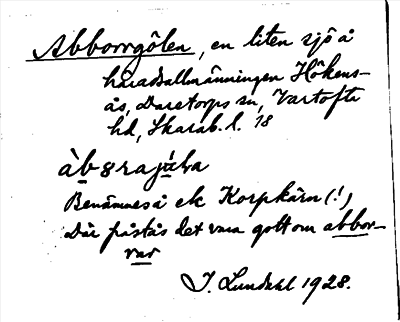 Abborrgölen, en liten sjö å
häradsallmänningen Hökens-
ås, Daretorps sn, Vartofta
hd, Skarab. l. 18
Benämnes å ek Korpkärn (!)
Där påstås det vara gott om abbor-
rar
J. Lundahl 1928.